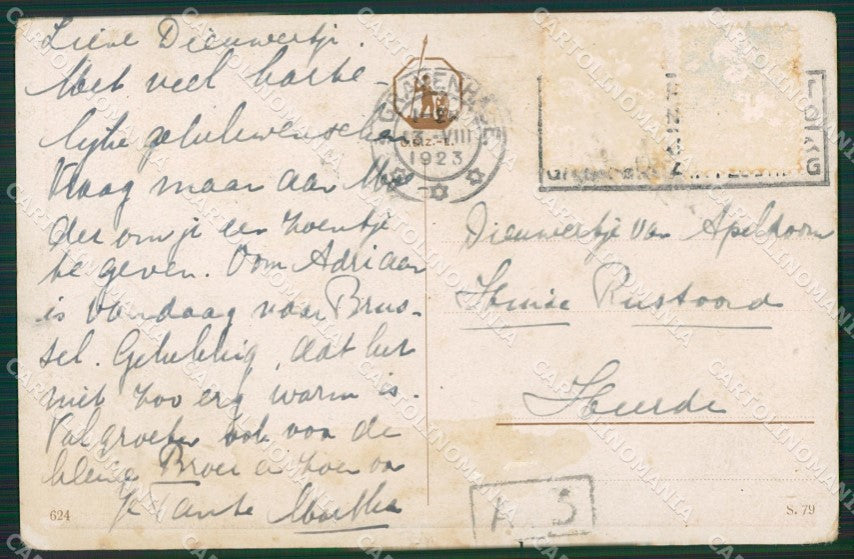 Lieve Dieuwertje.
Met veel harte-
lijke gelukwenschen
Vraag maar aan Moe
der om je een zoentje
te geven. Oom Adriaan
is vandaag naar Brus-
sel. Gelukkig, dat het
niet zoo erg warm is.
Veel groeten ook voor de
kleine Broer en zoen van
je Tante Martha
624
'S-GRAVENHAGE
13.VIII
1923
Dieuwertje van Apeldoorn
Huize Rustoord
Heerde
A. 3
S. 79
CARTOLINOMANIA